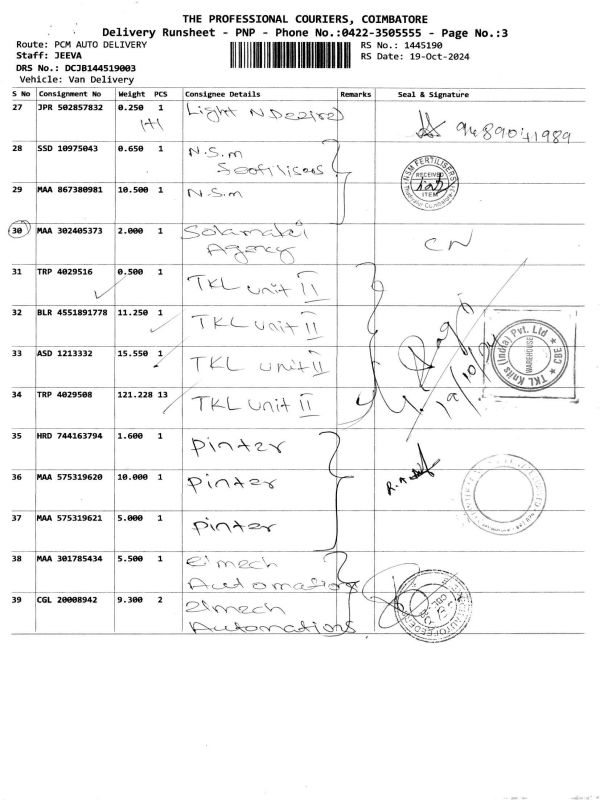 THE PROFESSIONAL COURIERS, COIMBATORE
Delivery Runsheet - PNP - Phone No.:0422-3505555 - Page No.:3
Route: PCM AUTO DELIVERY
RS No.: 1445190
Staff: JEEVA
RS Date: 19-Oct-2024
DRS No.: DCJB144519003
Vehicle: Van Delivery
S No Consignment No Weight PCS Consignee Details Remarks Seal & Signature
27 JPR 502857832 0.250 1 Light N Dezire
9489041989
28 SSD 10975043 0.650 1 N.S.m
NSM FERTILISERS
RECEIVED
ITEM
29 MAA 867380981 10.500 1 N.S.m
30 MAA 302405373 2.000 1
Agency
CN
31 TRP 4029516 0.500 1 TKL unit II
32 BLR 4551891778 11.250 1 TKL unit II
33 ASD 1213332 15.550 1 TKL unit II
19/10/24
TKL Knits (India) Pvt. Ltd
WAREHOUSE
CBE
34 TRP 4029508 121.228 13 TKL unit II
35 HRD 744163794 1.600 1 pinter
36 MAA 575319620 10.000 1 pinter
37 MAA 575319621 5.000 1 pinter
38 MAA 301785434 5.500 1 elmech
Automations
39 CGL 20008942 9.300 2 elmech
Automations